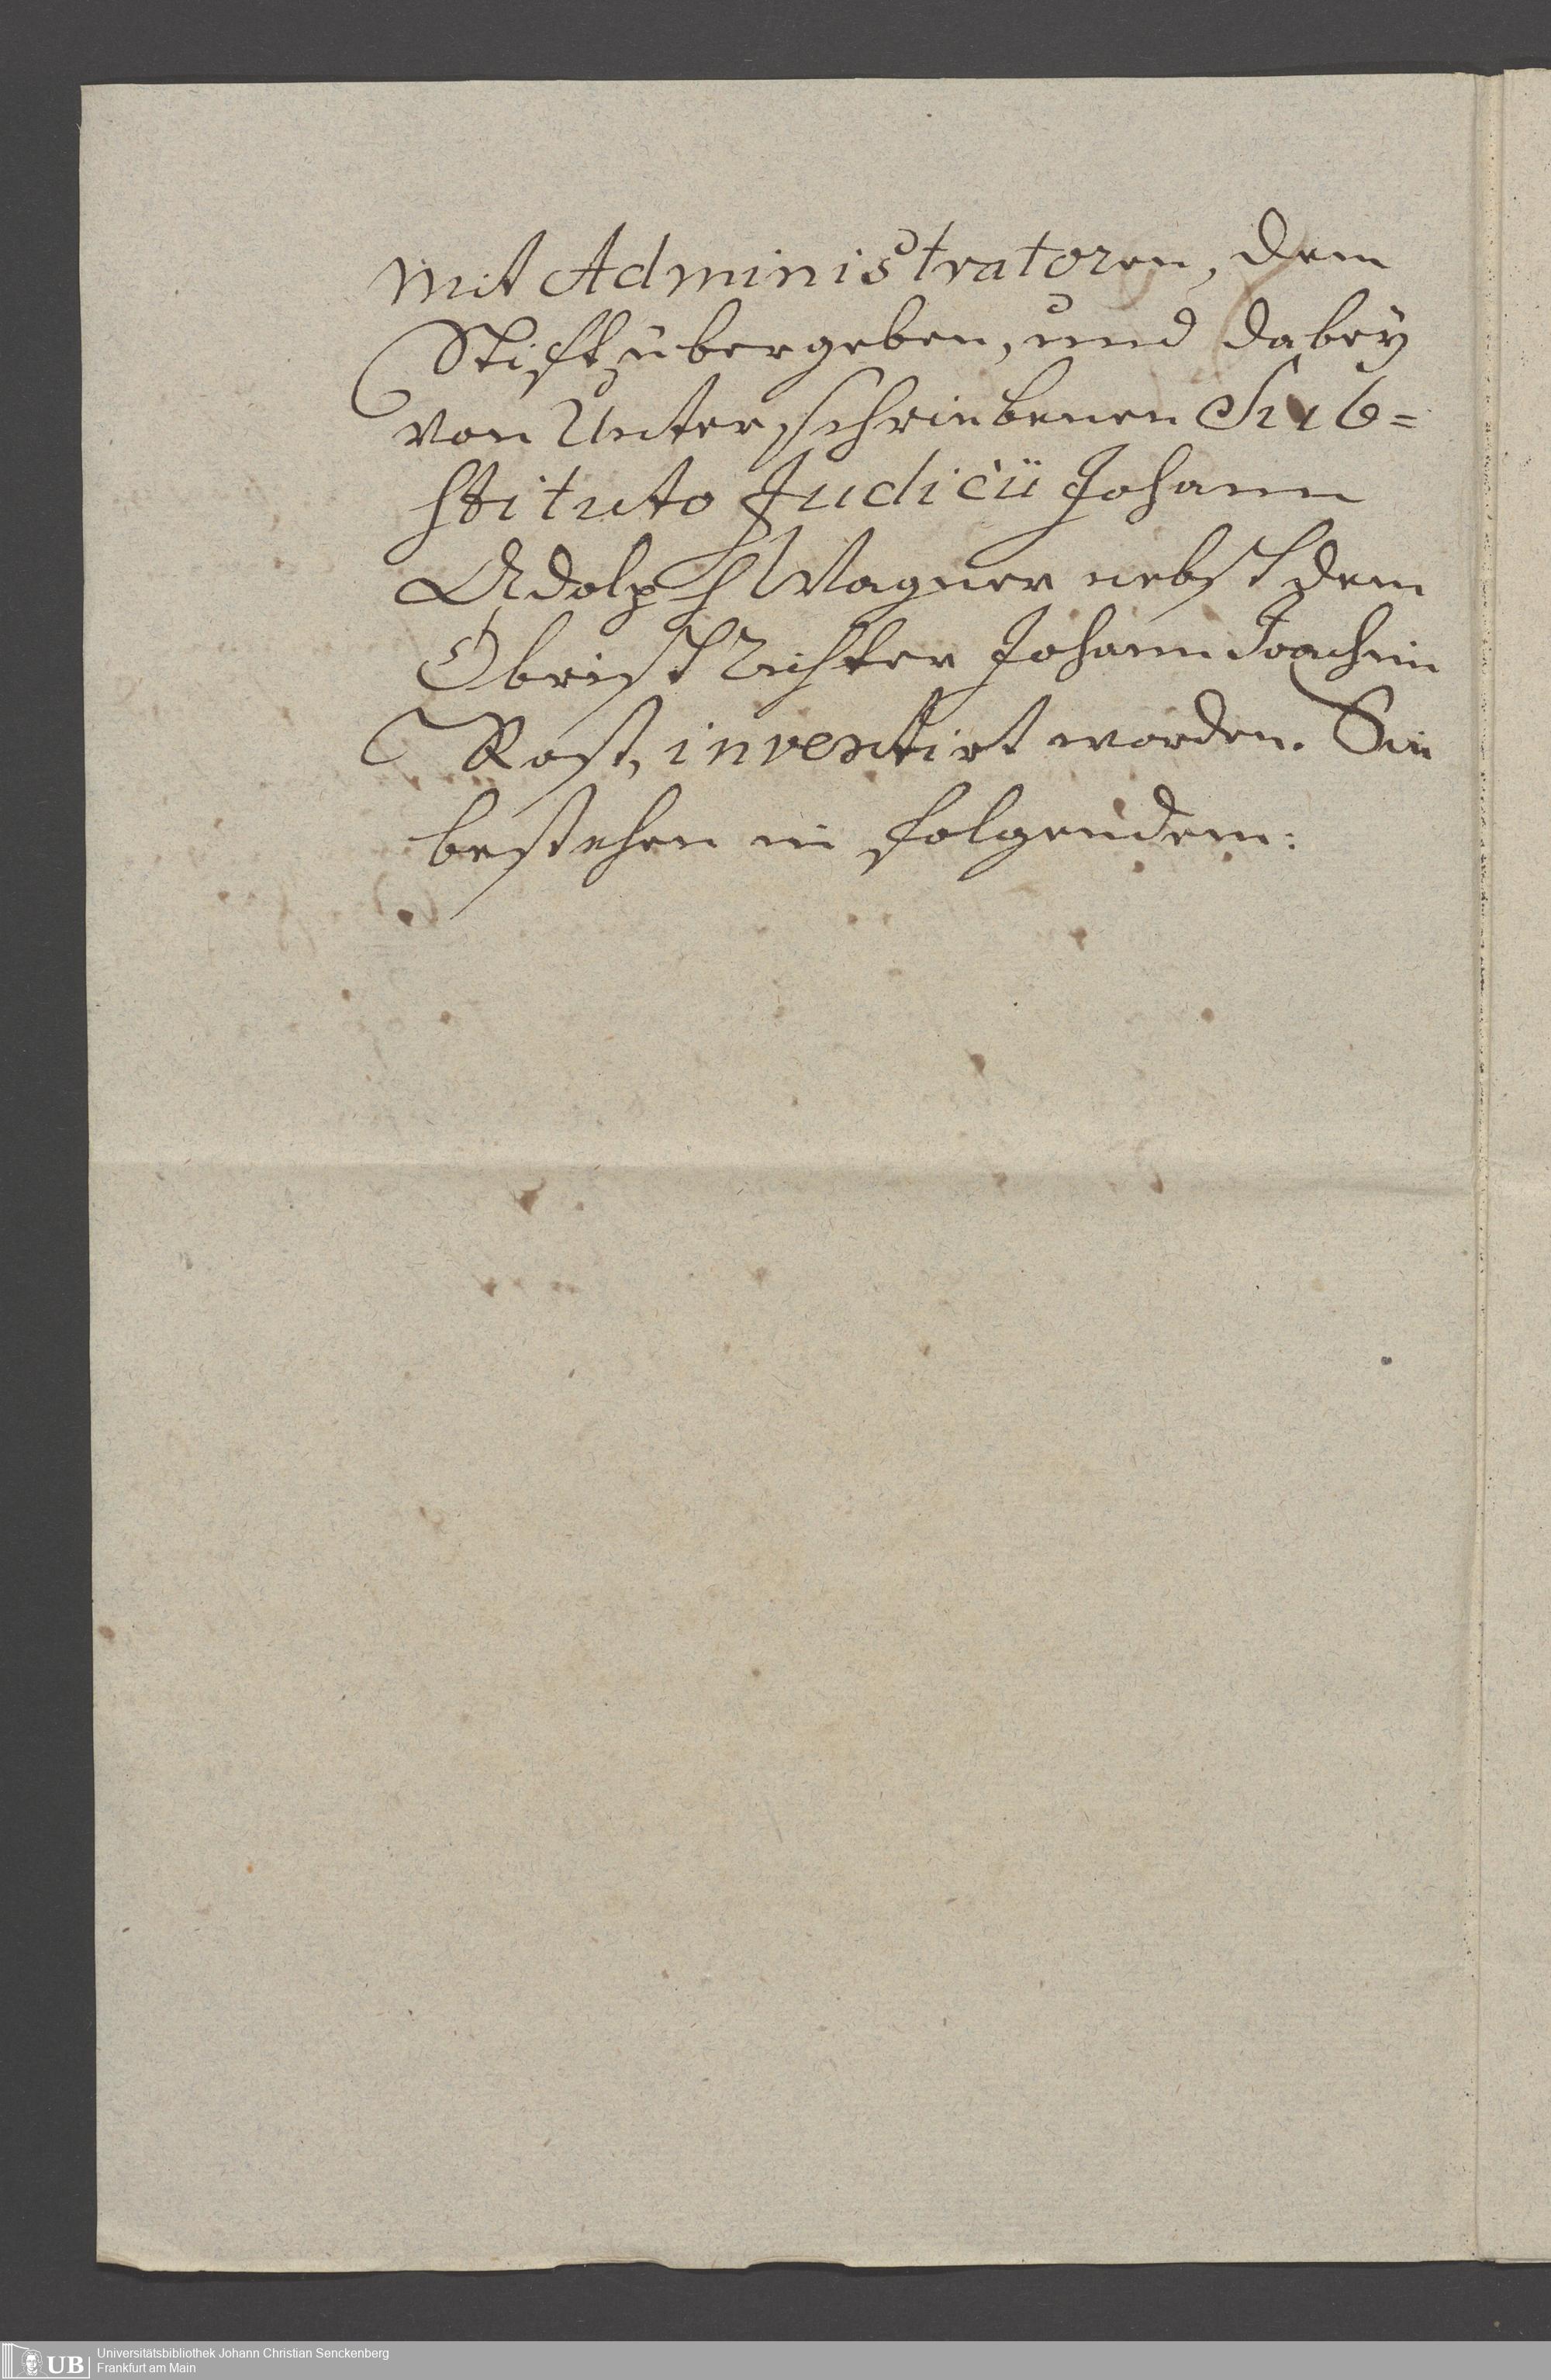 mit Administratoren, dem
Stifft übergeben, und dabey
von Unterschriebenen Sub=
stituto Judicii Johann
Adolph Wagner nebst dem
Obrist Richter Johann Joachim
Rost, inventirt worden. Sie
bestehen in folgendem:
UB
Universitätsbibliothek Johann Christian Senckenberg
Frankfurt am Main